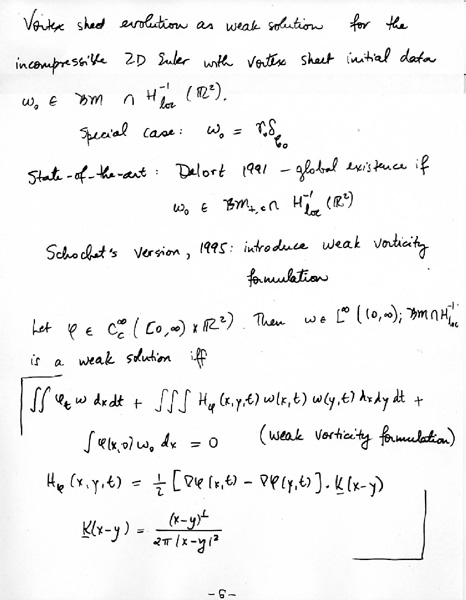 Vortex sheet evolution as weak solution for the
incompressible 2D Euler with vortex sheet initial data
ω₀ ∈ BM ∩ H⁻¹_loc (ℝ²).
Special case: ω₀ = γ₀δ_C₀
State-of-the-art: Delort 1991 – global existence if
ω₀ ∈ BM₊,c ∩ H⁻¹_loc (ℝ²)
Schochet's version, 1995: introduce weak vorticity
formulation
Let φ ∈ C_c^∞ ([0,∞) × ℝ²). Then ω ∈ L^∞ ([0,∞); BM ∩ H⁻¹_loc
is a weak solution iff
∬ φ_t ω dx dt + ∭ H_φ (x,y,t) ω(x,t) ω(y,t) dx dy dt +
∫ φ(x,0) ω₀ dx = 0 (weak vorticity formulation)
H_φ (x,y,t) = 1/2 [∇φ(x,t) − ∇φ(y,t)] · K(x−y)
K(x−y) = (x−y)^⊥ / 2π|x−y|²
-6-